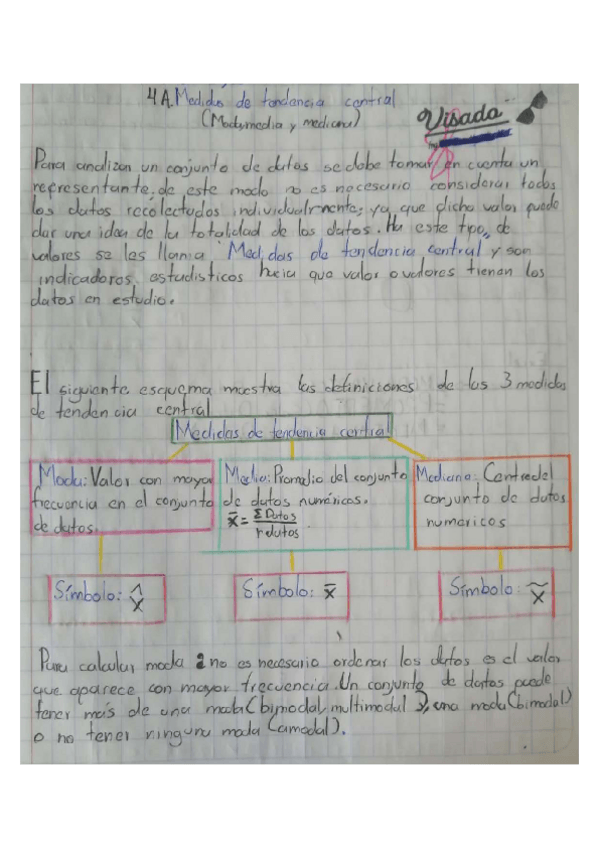 4A. Medidas de tendencia central
(Moda, media y mediana)
Visado
Para analizar un conjunto de datos se debe tomar en cuenta un
representante, de este modo no es necesario considerar todos
los datos recolectados individualmente, ya que dicho valor puede
dar una idea de la totalidad de los datos. Ha este tipo de
valores se les llama "Medidas de tendencia central" y son
indicadores estadisticos hacia que valor o valores tienen los
datos en estudio.
El siguiente esquema muestra las definiciones de las 3 medidas
de tendencia central
Medidas de tendencia central
Moda: Valor con mayor
frecuencia en el conjunto
de datos.
Media: Promedio del conjunto
de datos numéricos.
x̄ = Σ Datos / n datos
Mediana: Centro del
conjunto de datos
numericos
Símbolo: x̂
Símbolo: x̄
Símbolo: x̃
Para calcular moda no es necesario ordenar los datos es el valor
que aparece con mayor frecuencia. Un conjunto de datos puede
tener más de una moda (bimodal, multimodal), una moda (bimodal)
o no tener ninguna moda (amodal).